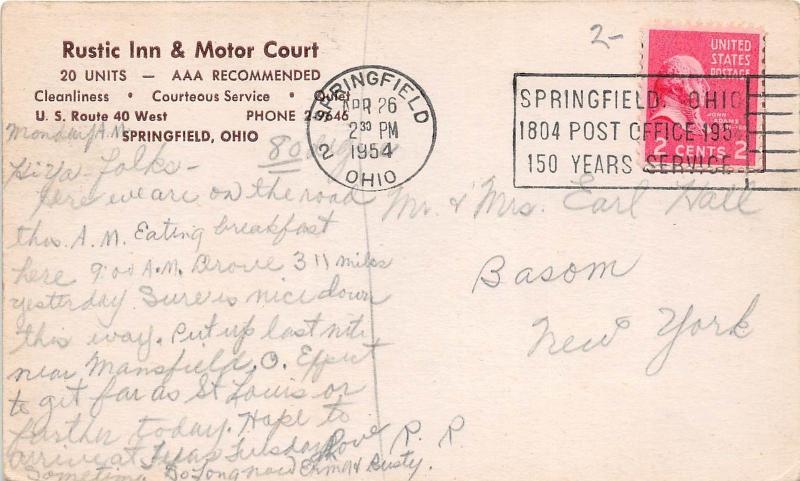 Rustic Inn & Motor Court
20 UNITS — AAA RECOMMENDED
Cleanliness • Courteous Service • Quiet
U. S. Route 40 West PHONE 2-9645
SPRINGFIELD, OHIO
Monday A.M.
Hi Ya folks —
Here we are on the road
this A.M. Eating breakfast
here 9:00 A.M. Drove 311 miles
yesterday Sure is nice down
this way. Put up last nite
near Mansfield, O. Expect
to get far as St Louis or
further today. Hope to
arrive at Tuesday
Sometime. So long now &
Rusty.
Love R. R
SPRINGFIELD
2
APR 26
2 30 PM
1954
OHIO
SPRINGFIELD, OHIO
1804 POST OFFICE 195
150 YEARS SERVICE
2-
UNITED
STATES
POSTAGE
JOHN ADAMS
2 CENTS 2
Mr. & Mrs. Earl Hall
Basom
New York